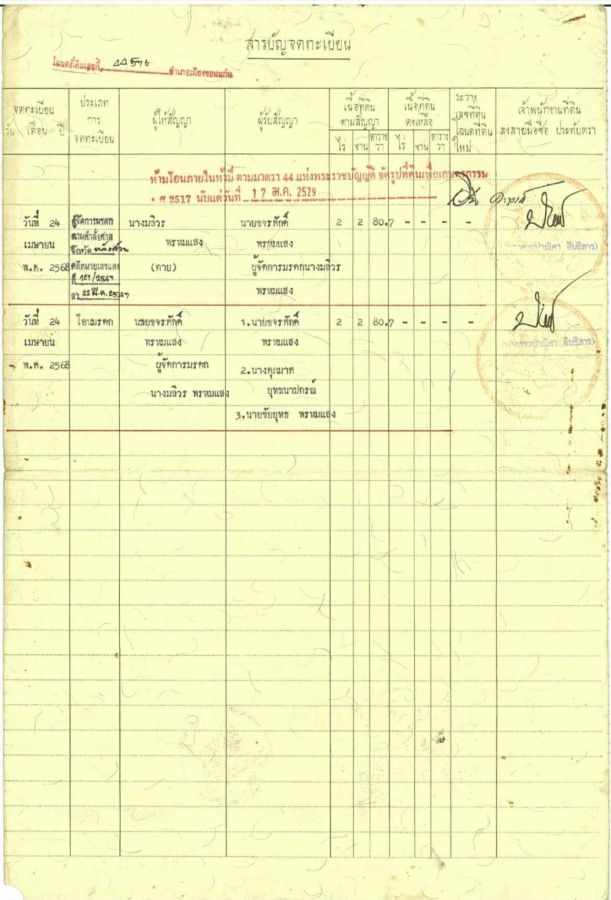 สารบัญจดทะเบียน
โฉนดที่ดินเลขที่ 44576 อำเภอเมืองขอนแก่น
จดทะเบียน
วัน เดือน ปี
ประเภท
การ
จดทะเบียน
ผู้ให้สัญญา
ผู้รับสัญญา
เนื้อที่ดิน
ตามสัญญา
ไร่ งาน ตารางวา
เนื้อที่ดิน
คงเหลือ
ไร่ งาน ตารางวา
ระวาง
เลขที่ดิน
โฉนดที่ดิน
ใหม่
เจ้าพนักงานที่ดิน
ลงลายมือชื่อ ประทับตรา
ห้ามโอนภายในห้าปี ตามมาตรา 44 แห่งพระราชบัญญัติ จัดรูปที่ดินเพื่อเกษตรกรรม
พ ศ 2517 นับแต่วันที่ 17 ม.ค. 2529
วันที่ 24 ผู้จัดการมรดก นางมลิวร นายขจรศักดิ์ 2 2 80.7 - - - -
เมษายน ตามคำสั่งศาล พรหมแสง พรหมแสง
จังหวัด
พ.ศ. 2568 คดีหมายเลขแดง (ตาย) ผู้จัดการมรดกนางมลิวร
ที่ 121/2547
ลว 22 มี.ค. 2547 พรหมแสง
วันที่ 24 โอนมรดก นายขจรศักดิ์ 1.นายขจรศักดิ์ 2 2 80.7 - - - -
เมษายน พรหมแสง พรหมแสง
พ.ศ. 2568 ผู้จัดการมรดก 2.นางดุษฎี
นางมลิวร พรหมแสง ยุทธนาปกรณ์
3.นายชัยยุทธ พรหมแสง